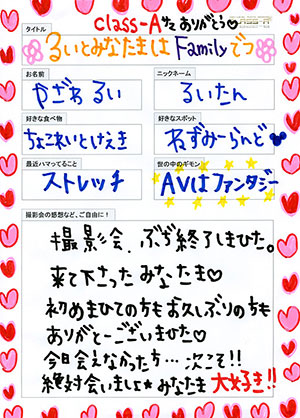 class-Aサマ ありがとう♡
タイトル
るいとみなたまは Familyでつ
お名前
やざわ るい
ニックネーム
るいたん
好きな食べ物
ちょこれいとけえき
好きなスポット
ねずみーらんど
最近ハマってること
ストレッチ
世の中のギモン
AVはファンタジー
撮影会の感想など、ご自由に!
撮影会、ぶぢ終了しまひた。
来て下さった みなたま♡
初めまひての方もお久しぶりの方も
ありがとーございまひた♡
今日会えなかった方…次こそ!!
絶対会いましょ★ みなたま 大好き!!